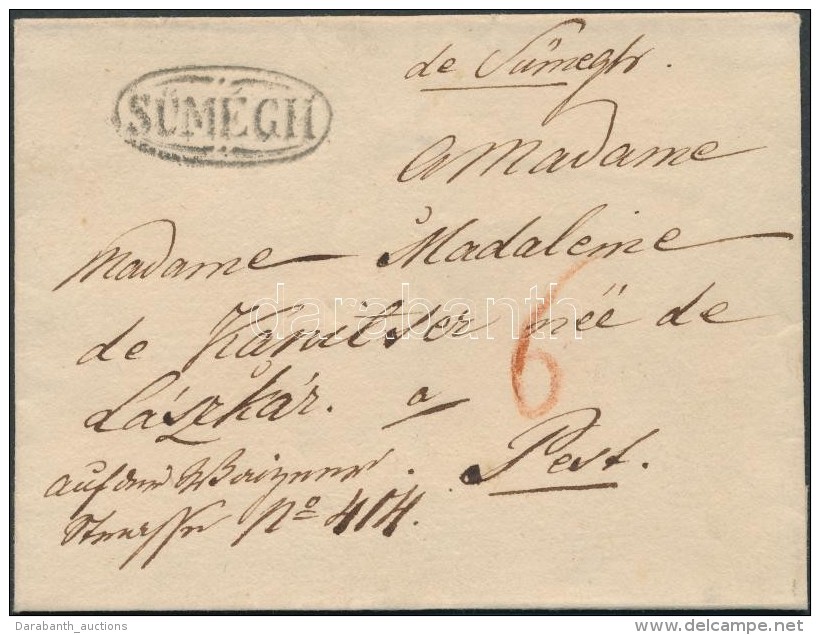 SÜMÉGH
de Sümegh.
a Madame
Madame Madaleine
de Kanitsér née de
Lászkár. a
Pest.
auf der Waizner
Strasse No 414.
6
darabanth
Darabanth_auctions
delcampe.net